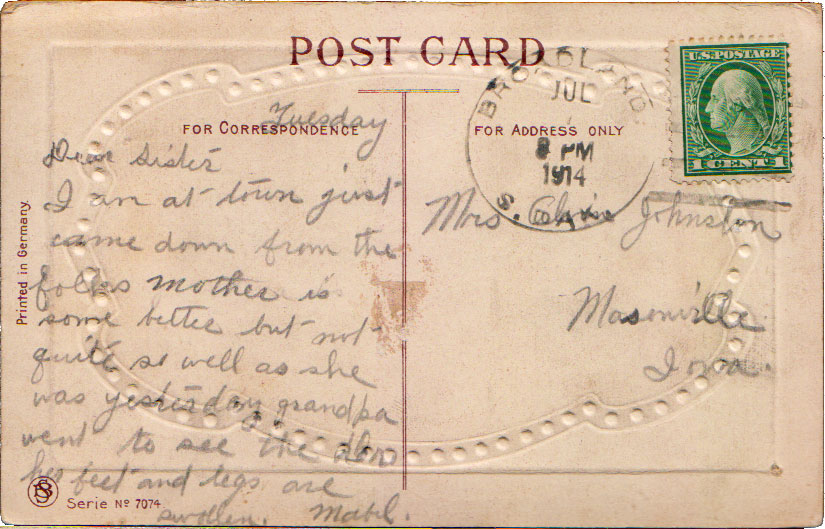 POST CARD
Tuesday
FOR CORRESPONDENCE
Dear Sister
I am at town just
came down from the
folks mother is
some better but not
quite so well as she
was yesterday grandpa
went to see the
her feet and legs are
swollen. Mabl.
Printed in Germany
Serie No 7074
FOR ADDRESS ONLY
JUL
8 PM
1914
S.
U.S. POSTAGE
1 CENT 1
Mrs Johnston
Masonville
Iowa.